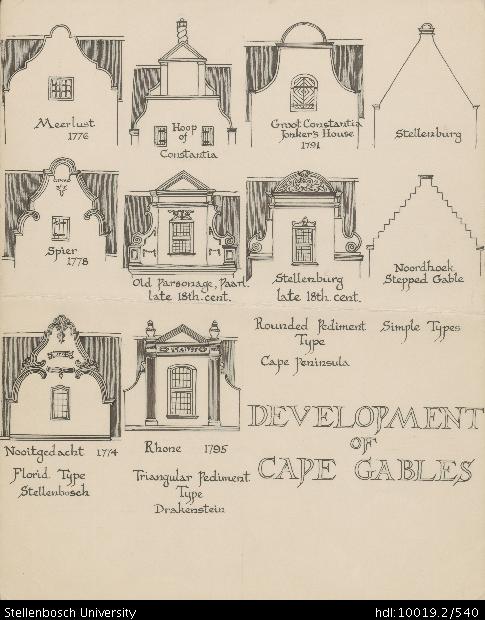 Meerlust
1776
Hoop
of
Constantia
Groot Constantia
Jonker's House
1791
Stellenburg
Spier
1778
Old Parsonage, Paarl.
late 18th.cent.
Stellenburg
late 18th.cent.
Noordhoek
Stepped Gable
Nooitgedacht 1774
Florid Type
Stellenbosch
Rhone 1795
Triangular Pediment
Type
Drakenstein
Rounded Pediment
Type
Cape Peninsula
Simple Types
DEVELOPMENT
OF
CAPE GABLES
Stellenbosch University
hdl:10019.2/540